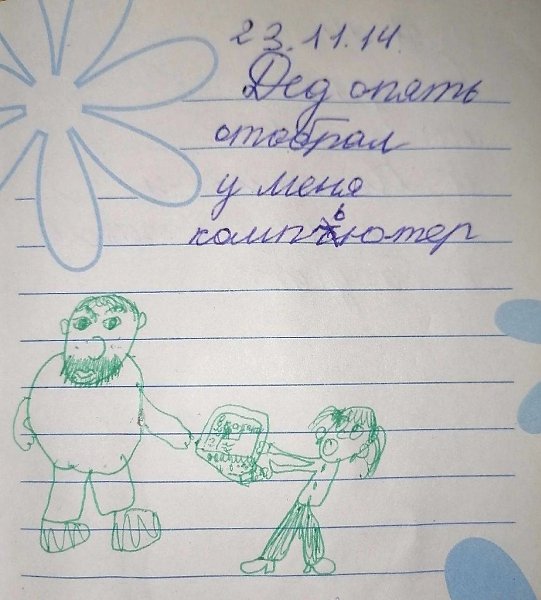 23.11.14.
Дед опять
отобрал
у меня
компьютер